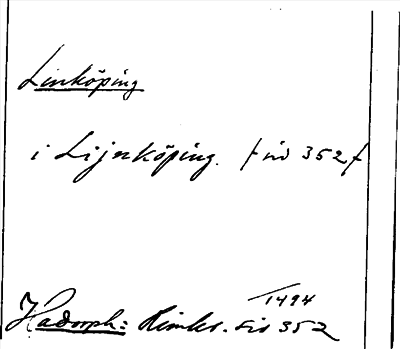 Linköping
i Lijnköping. / sid 352 /
1494
Hadorph: Rimkr. sid 352